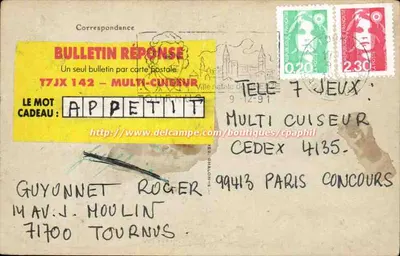 Correspondance
BULLETIN RÉPONSE
Un seul bulletin par carte postale
T7JX 142 - MULTI-CUISEUR
LE MOT
CADEAU :
APPETIT
http://www.delcampe.com/boutiques/cpaphil
0,20
2,30
9-12-91
TELE 7 JEUX:
MULTI CUISEUR
CEDEX 4135.
99413 PARIS CONCOURS
GUYONNET ROGER
14 AV. J. MOULIN
71700 TOURNUS.